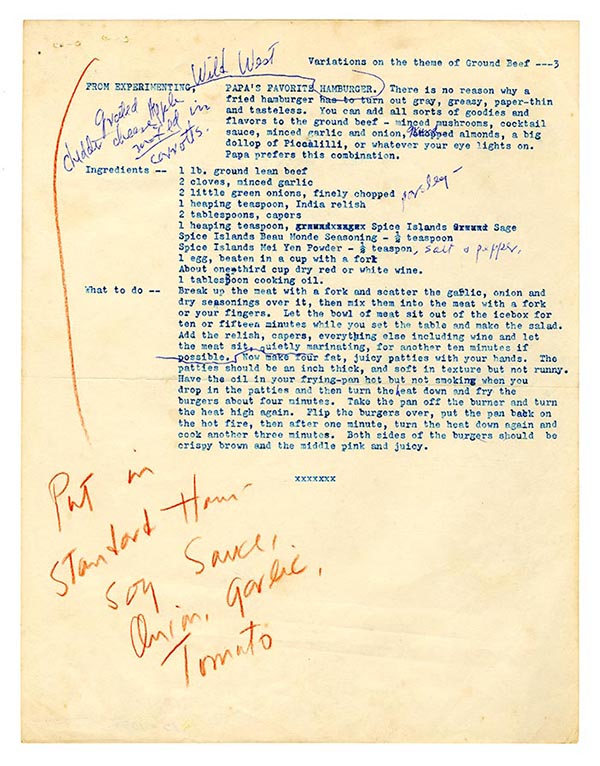 Variations on the theme of Ground Beef ---3
Wild West
FROM EXPERIMENTING, PAPA'S FAVORITE HAMBURGER. There is no reason why a
fried hamburger has to turn out gray, greasy, paper-thin
and tasteless. You can add all sorts of goodies and
flavors to the ground beef - minced mushrooms, cocktail
sauce, minced garlic and onion, chopped almonds, a big
dollop of Piccalilli, or whatever your eye lights on.
Papa prefers this combination.
grated apple
cheddar cheese
mixed in
carrots.
Ingredients -- 1 lb. ground lean beef
2 cloves, minced garlic
2 little green onions, finely chopped parsley
1 heaping teaspoon, India relish
2 tablespoons, capers
1 heaping teaspoon, Spice Islands Sage
Spice Islands Beau Monde Seasoning - ½ teaspoon
Spice Islands Mei Yen Powder - ½ teaspon, salt & pepper,
1 egg, beaten in a cup with a fork
About one third cup dry red or white wine.
1 tablespoon cooking oil.
What to do -- Break up the meat with a fork and scatter the garlic, onion and
dry seasonings over it, then mix them into the meat with a fork
or your fingers. Let the bowl of meat sit out of the icebox for
ten or fifteen minutes while you set the table and make the salad.
Add the relish, capers, everything else including wine and let
the meat sit, quietly marinating, for another ten minutes if
possible. Now make four fat, juicy patties with your hands. The
patties should be an inch thick, and soft in texture but not runny.
Have the oil in your frying-pan hot but not smoking when you
drop in the patties and then turn the heat down and fry the
burgers about four minutes. Take the pan off the burner and turn
the heat high again. Flip the burgers over, put the pan back on
the hot fire, then after one minute, turn the heat down again and
cook another three minutes. Both sides of the burgers should be
crispy brown and the middle pink and juicy.
xxxxxxx
Put in
Standard Ham-
Soy Sauce,
Onion, garlic,
Tomato